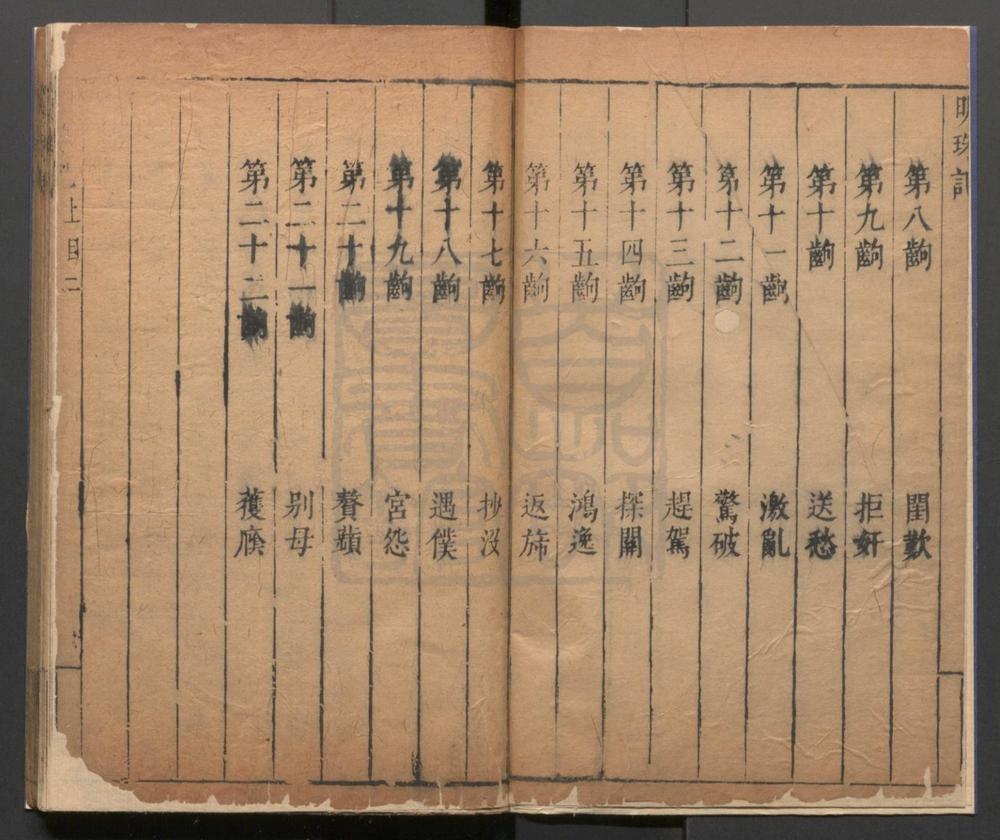 明珠記
第八齣 閨歎
第九齣 拒奸
第十齣 送愁
第十一齣 激亂
第十二齣 驚破
第十三齣 趕駕
第十四齣 探關
第十五齣 鴻逸
第十六齣 返斾
第十七齣 抄沒
第十八齣 遇僕
第十九齣 宮怨
第二十齣 贅蘋
第二十一齣 别母
第二十二齣
上目二